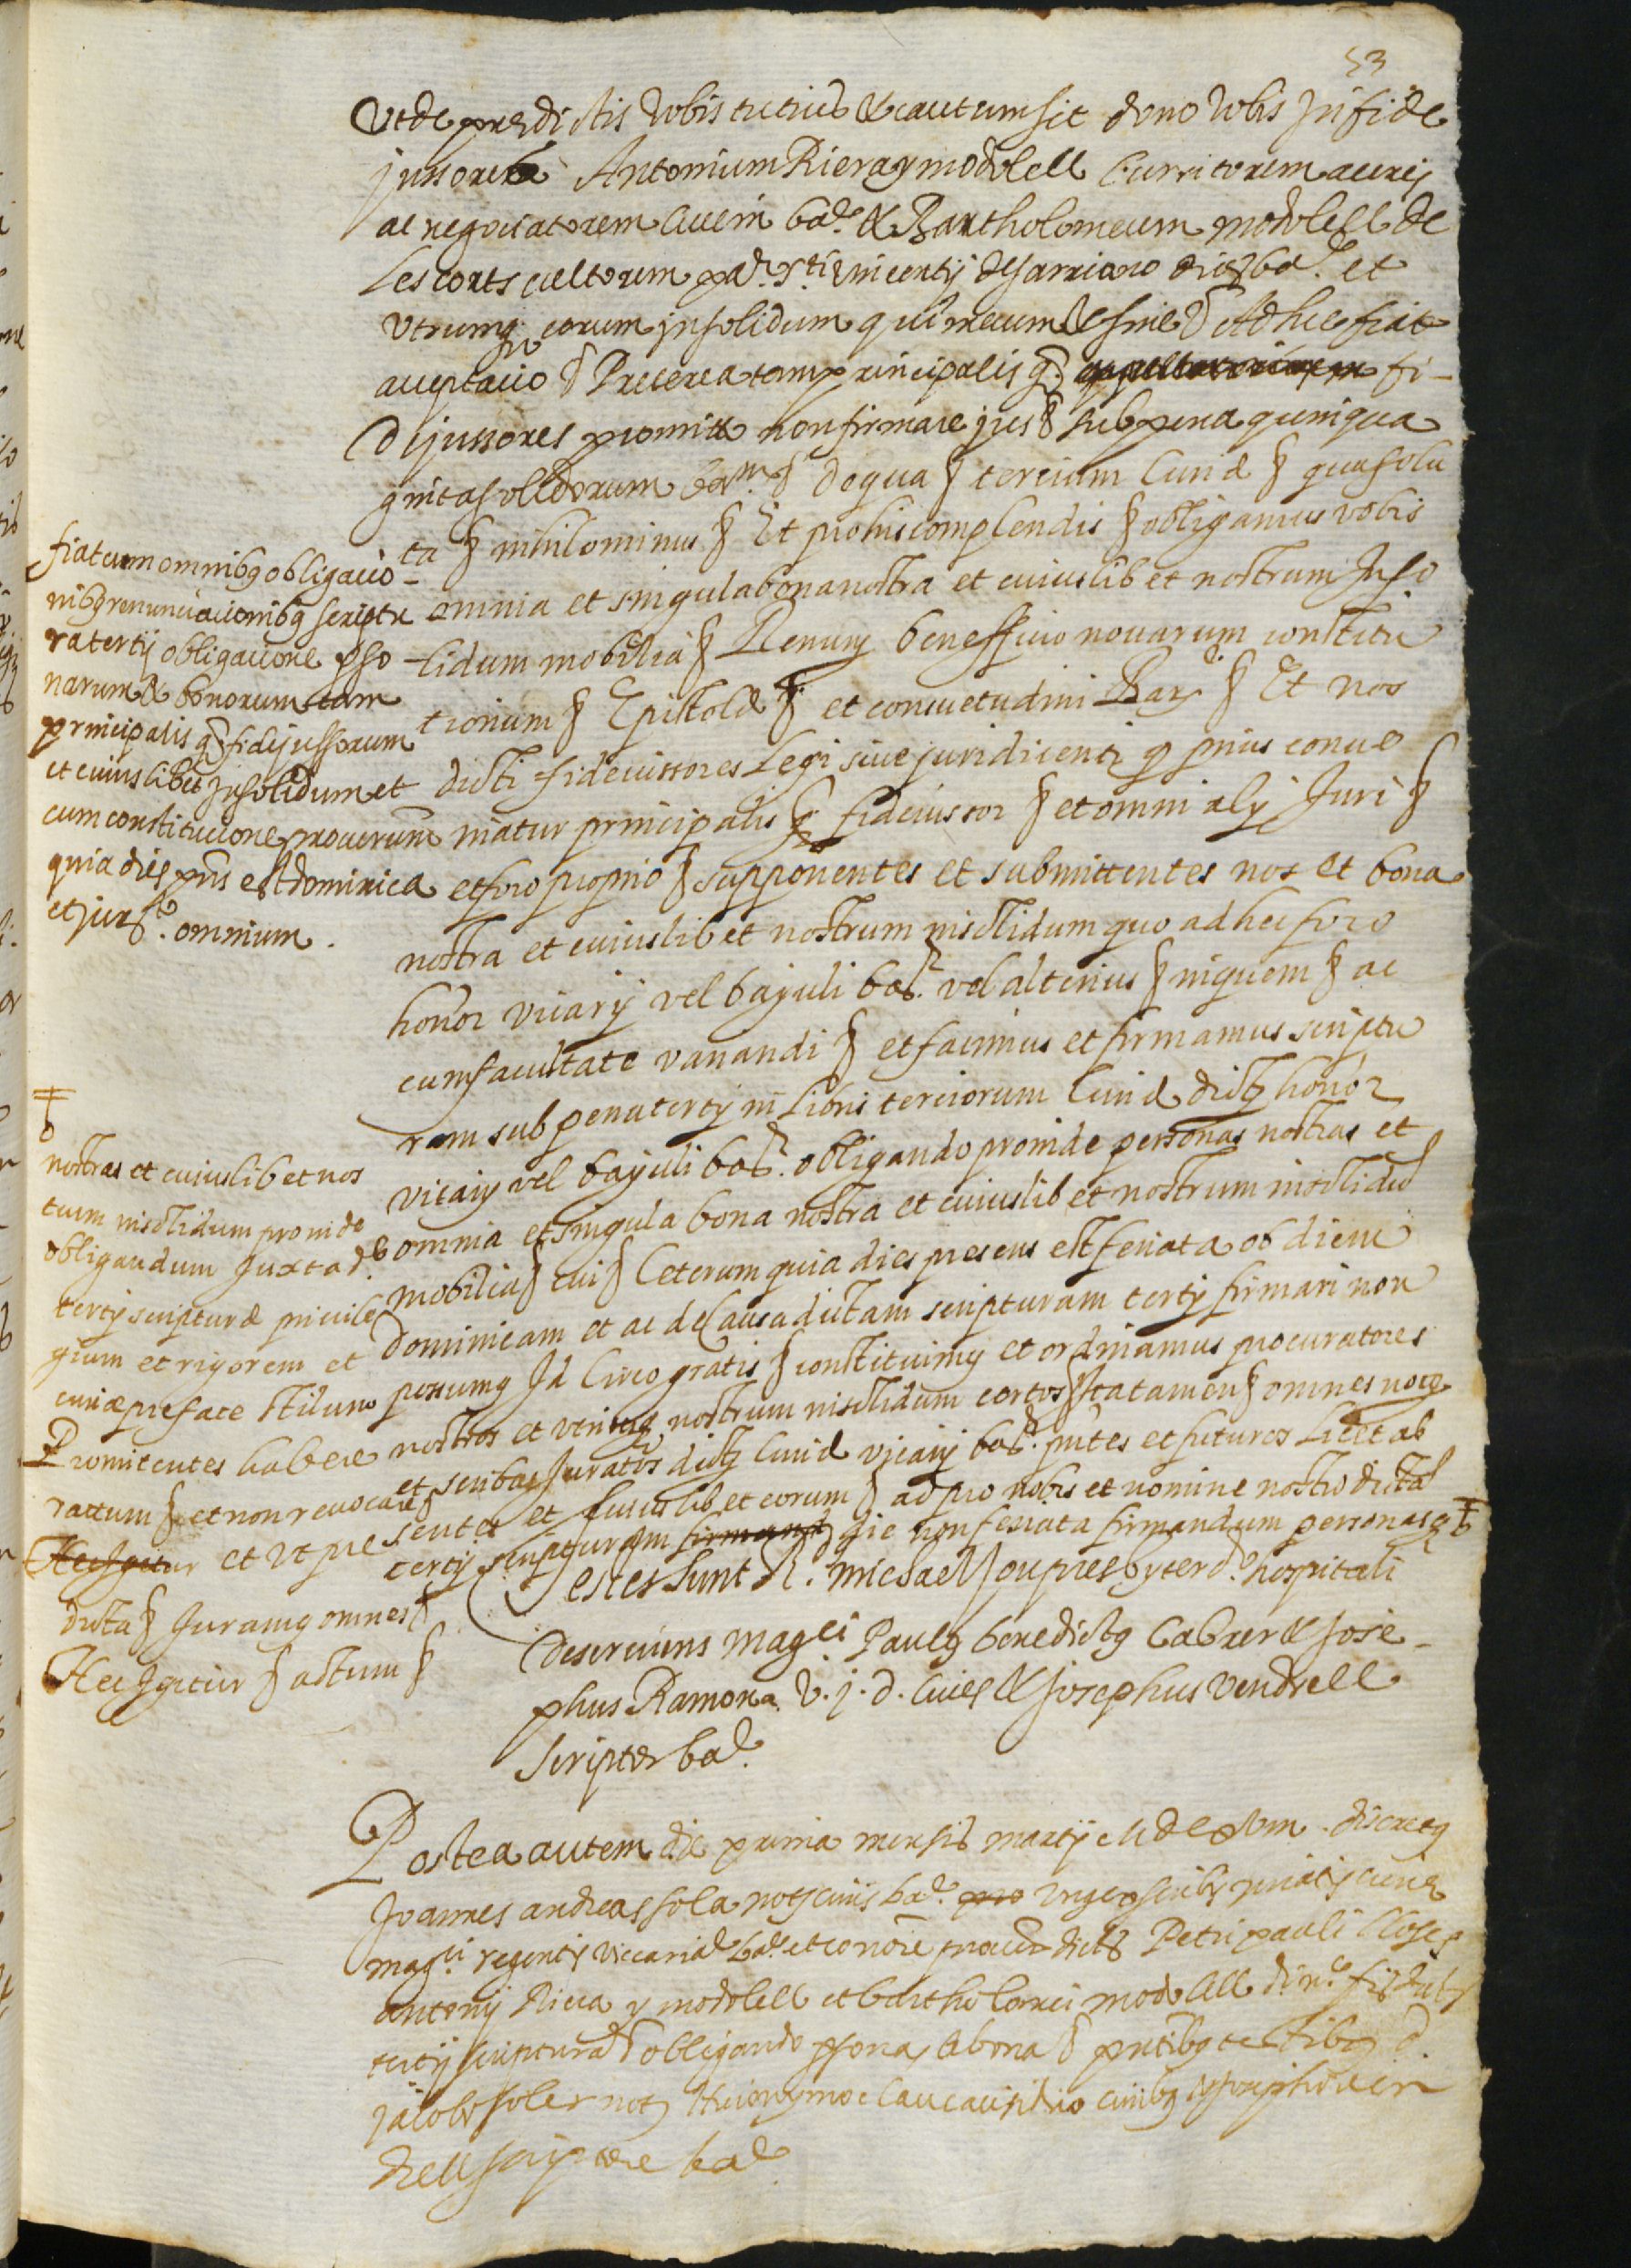 53
Ut de predictis vobis tutius & cautum sit dono vobis in fide
jussores Antonium Riera y modolell Curritorem auris
ac negociatorem civem bar. & Bartholomeum modolell de
Les corts cultorem par. Sti. Vincentij de sarriano dios. bar. et
utrumq. eorum insolidum qui mecum & sine § Ad hec fiat
acceptatio § Preterea tam principalis q. fi-
dejussores promitt. non firmare jus § sub pena quinqua
ginta solidorum bar. § de qua § tercium Curiæ § qua solu
ta § nihilominus § Et pro his complendis § obligamus vobis
omnia et singula bona nostra et cuiuslibet nostrum Inso
lidum mobilia § Renun. benefficio novarum constitu
tionum § Epistolæ § et consuetudini Bar. § Et nos
dicti fideiussores Legi sive juri dicenti q. prius conve
niatur principalis q. fideiussor § et omni alij Juri §
et foro proprio § supponentes et submittentes nos et bona
nostra et cuiuslibet nostrum insolidum quo ad hec foro
honor. vicarij vel bajuli bar. vel alterius § in quem § ac
cum facultate variandi § et facimus et firmamus scriptu
ram sub pena tertij in Libris terciorum Curiæ dict. honor.
vicarij vel bajuli bar. obligando proinde personas nostras et
omnia et singula bona nostra et cuiuslibet nostrum insolidum
mobilia § cui § Ceterum quia dies presens est feriata ob diem
dominicam et ac de causa dictam scripturam tertij firmari non
possumq. Id Circo gratis § constituimq. et ordinamus procuratores
nostros et utriusq. nostrum insolidum certos § ita tamen § omnes notos
et scribas juratos dict. Curiæ vicarij bar. pñtes et futuros Licet ab
sentes et cuiuslibet eorum § ad pro nobis et nomine nostro dictã
tertij scripturam firmand. die non feriata firmandum personasq.
Testes sunt R. Michael Jou presbyter d. hospitali
deserviens Magci. Paulq. benedictq. Cabrer & Jose-
phus Ramona v. j. d. Cives & Josephus Vendrell
scriptor bar.
fiat cum omnibq. obligatio-
nibq. renunciationibq. scriptu
ra tertij obligatione pso
narum & bonorum tam
principalis q. fidejussorum
et cuiuslibet insolidum et
cum constitucione procurum
quia dies pñs est dominica
et jur. omnium.
nostras et cuiuslibet nos
trum insolidum proinde
obligandum Juxta
tertij scripturæ privile
gium et rigorem et
curiæ prefate stilum
Promitentes habere
ratum § et non revocare §
Hec Igitur et ut pre
dicta § Juramq. omnes §
Hec Igitur § actum §
Postea autem die prima mensis martij MDCxviii. discretq.
Joannes andreas sola notq. civis bar. pro unq. ex scribis juratis curiæ
magci. regentis vicariam bar. et eo noĩe procur. dict. Petri pauli Closes
antonij Riera y modolell et bartholomei modolell
tertij scripturã § obligando psonas & bona § pñtibq. testibq. d.
jacobo soler notq. Hieronymo civibq. & Josepho ven
drell scriptore bar.